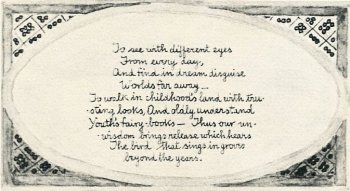 To see with different eyes
From every day,
And find in dream disguise
Worlds far away —
To walk in childhood's land with tru-
sting looks, And oldly understand
Youth's fairy-books — Thus our un-
wisdom brings release which hears
The bird that sings in yours
beyond the years.